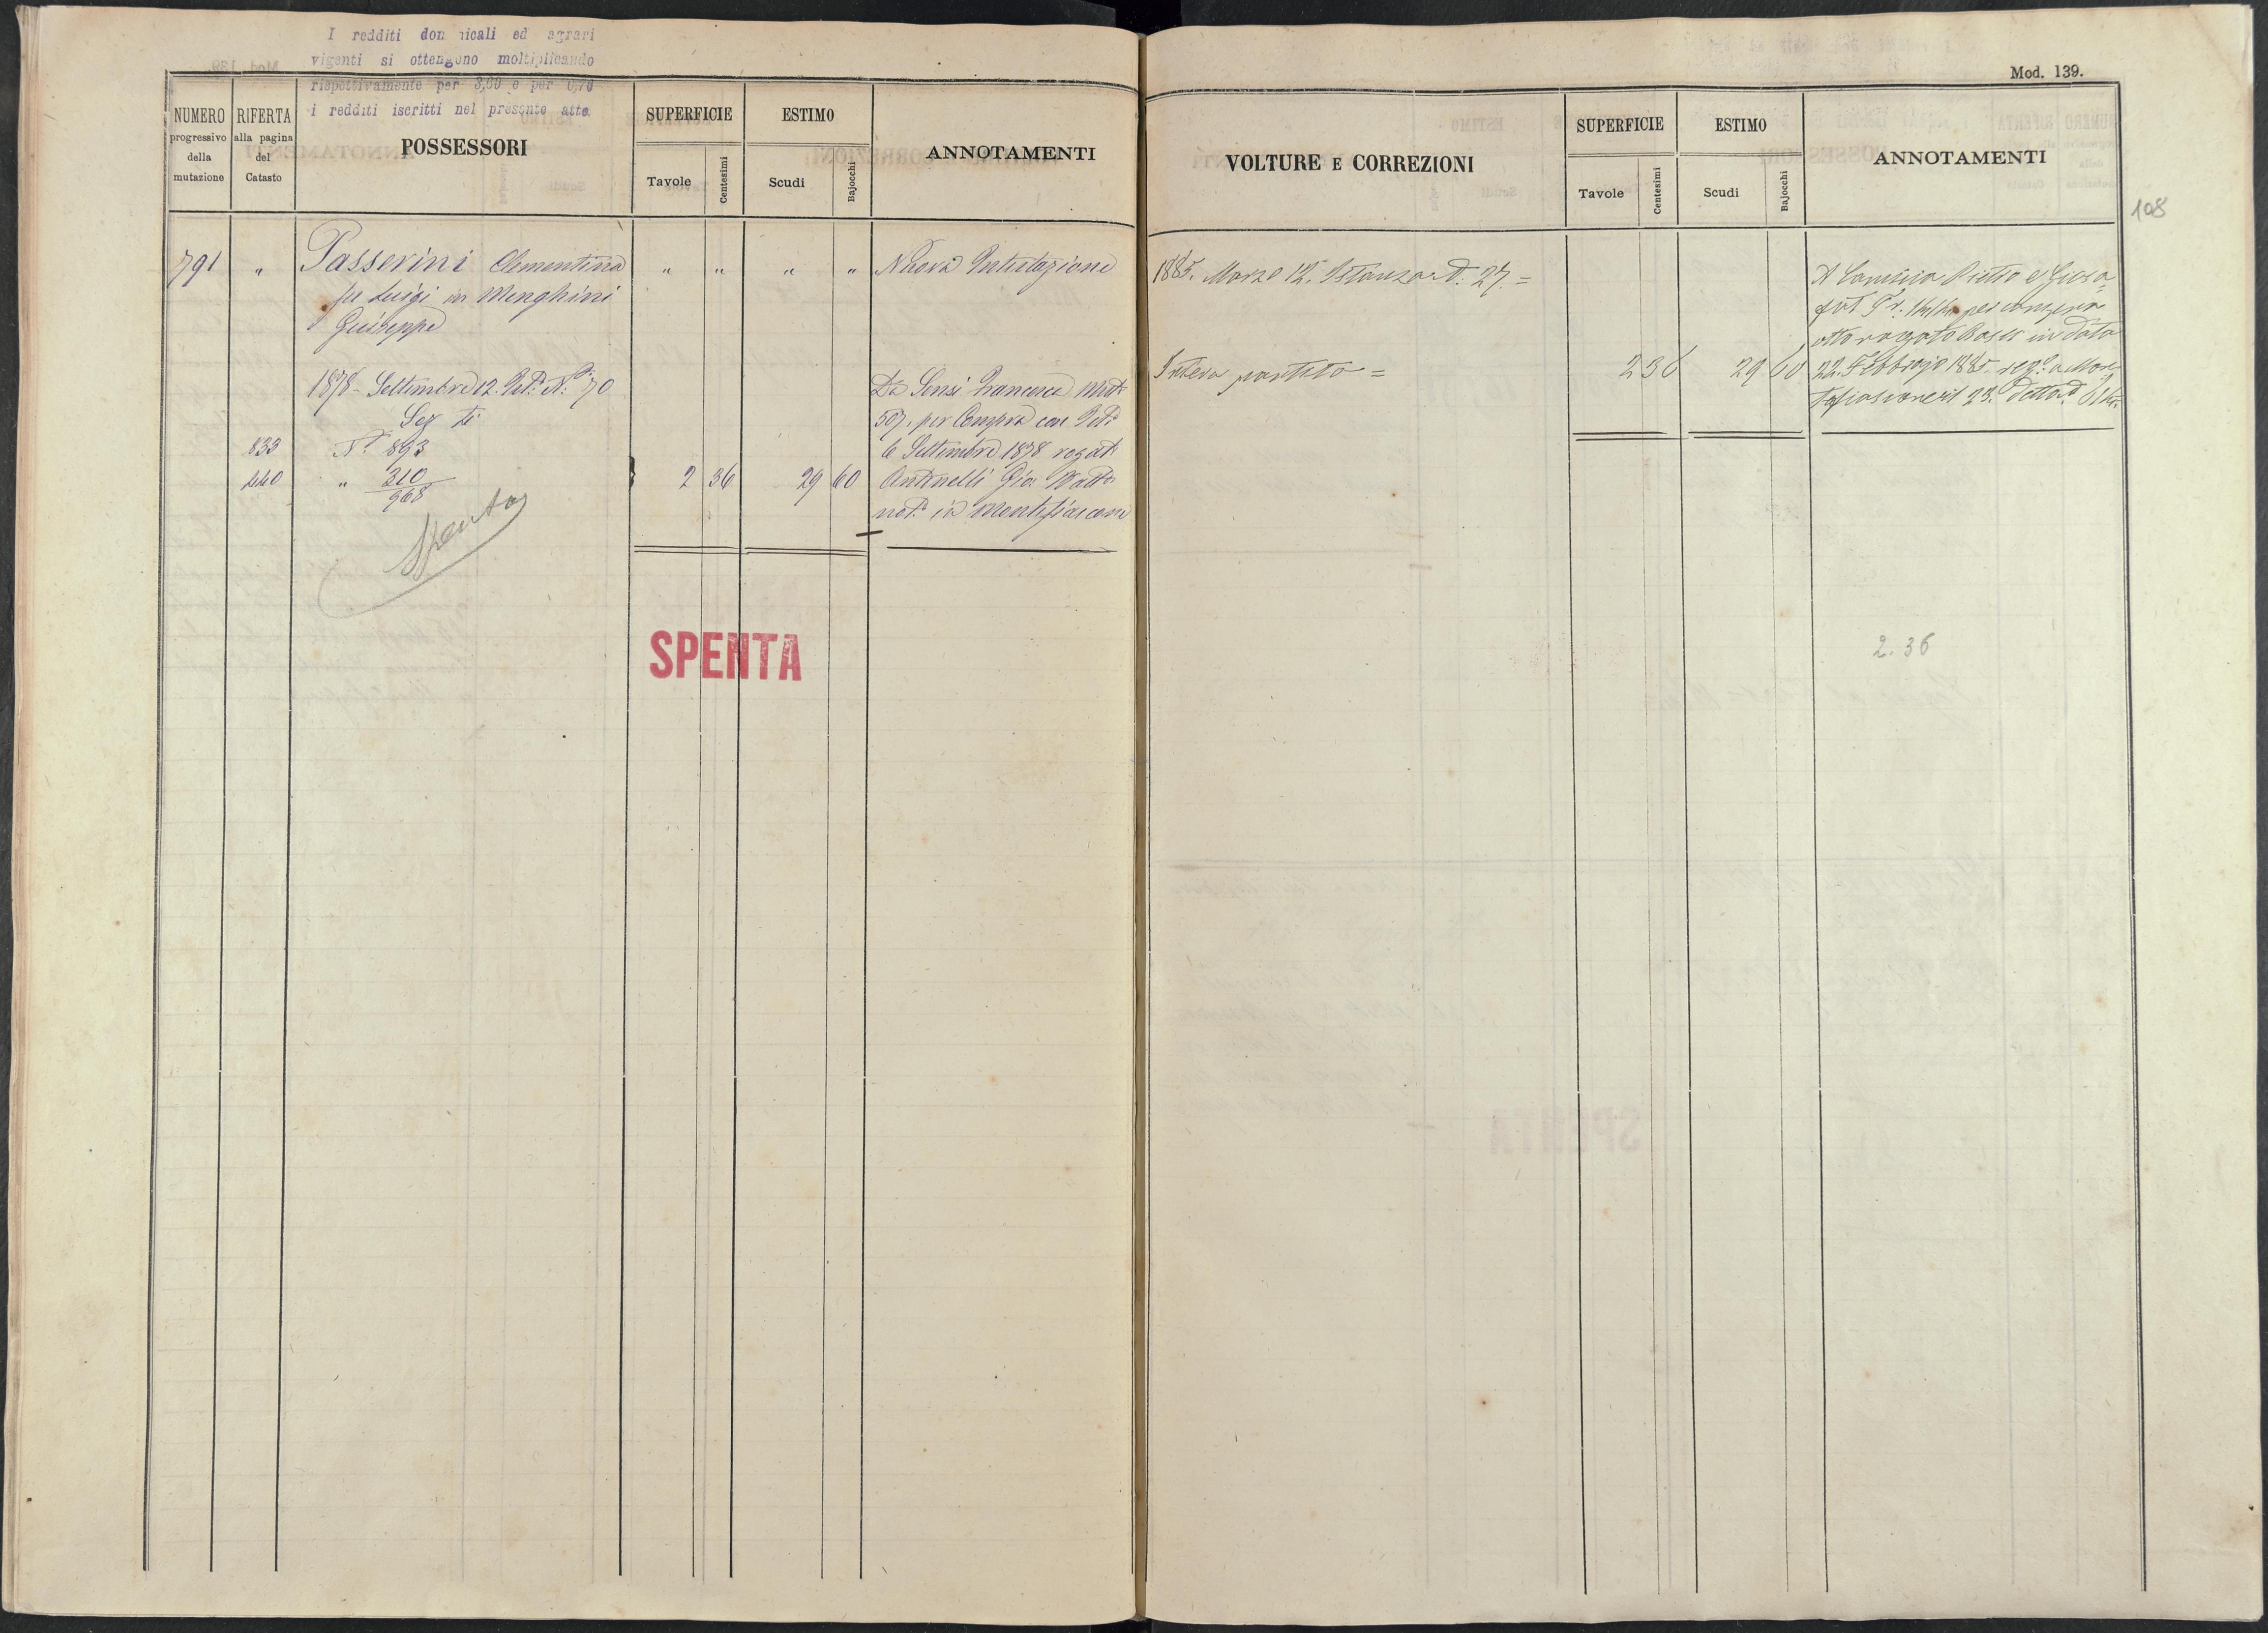 I redditi dominicali ed agrari
vigenti si ottengono moltiplicando
rispettivamente per 3,60 e per 0,70
i redditi iscritti nel presente atto
NUMERO
progressivo
della
mutazione
RIFERTA
alla pagina
del
Catasto
POSSESSORI
SUPERFICIE
Tavole
Centesimi
ESTIMO
Scudi
Bajocchi
ANNOTAMENTI
791 " Passerini Clementina " " " " Nuova Intestazione
fu Luigi in Menghini
Giuseppe
1878 - Settembre 12. N. 70
Da Sensi Francesca
507. per Compra
Sez
833 N. 893
6 Settembre 1878 rogat
440 " 310/968 2 36 29 60 Antonelli Gio.
not. in Montefiascone
Spenta
SPENTA
Mod. 139.
VOLTURE E CORREZIONI
SUPERFICIE
Tavole
Centesimi
ESTIMO
Scudi
Bajocchi
ANNOTAMENTI
108
1885. Marzo 12. Istanza N. 27. =
A Pietro e
per compra
atto rogato in data
Intera partita = 2 36 29 60 22. Febbrajo 1885. reg. a Mon-
tefiascone il 23. detto
2. 36